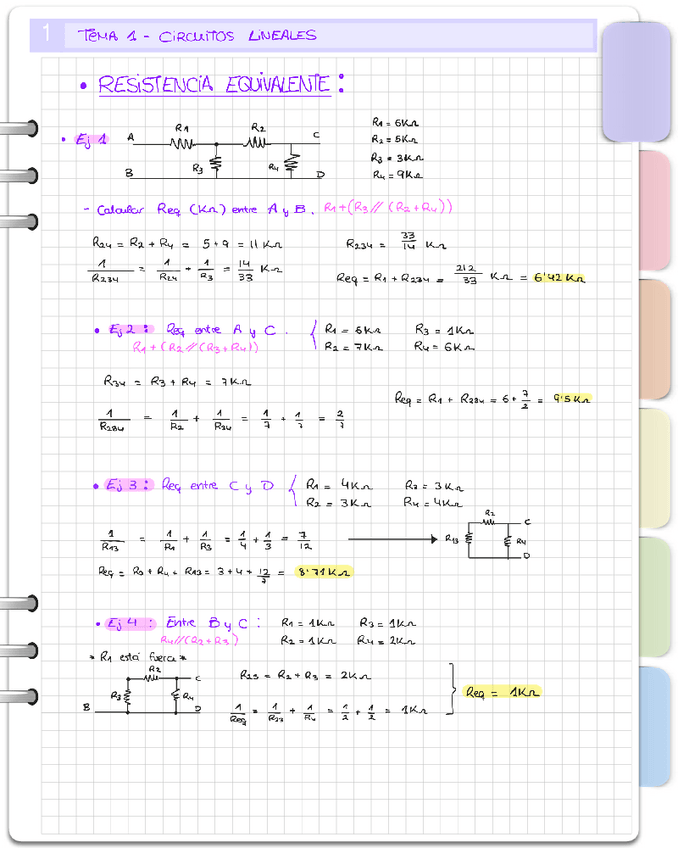 1 TEMA 1 - CIRCUITOS LINEALES
• RESISTENCIA EQUIVALENTE:
• Ej 1
A R1 R2 C
B R3 R4 D
R1 = 6KΩ
R2 = 5KΩ
R3 = 3KΩ
R4 = 9KΩ
- Calcular Req (KΩ) entre A y B. R1+(R3 // (R2+R4))
R24 = R2 + R4 = 5+9 = 11 KΩ
R234 = 33/14 KΩ
1/R234 = 1/R24 + 1/R3 = 14/33 KΩ
Req = R1 + R234 = 212/33 KΩ = 6'42 KΩ
• Ej 2: Req entre A y C. { R1 = 6KΩ R3 = 1KΩ
R1+(R2//(R3+R4)) R2 = 7KΩ R4 = 6KΩ
R34 = R3 + R4 = 7KΩ
Req = R1 + R234 = 6 + 7/2 = 9'5KΩ
1/R234 = 1/R2 + 1/R34 = 1/7 + 1/7 = 2/7
• Ej 3: Req entre C y D { R1 = 4KΩ R3 = 3KΩ
R2 = 3KΩ R4 = 4KΩ
1/R13 = 1/R1 + 1/R3 = 1/4 + 1/3 = 7/12
R2 C
R13 R4
D
Req = R2 + R4 + R13 = 3+4+12/7 = 8'71KΩ
• Ej 4: Entre B y C: R1 = 1KΩ R3 = 1KΩ
R4//(R2+R3) R2 = 1KΩ R4 = 2KΩ
* R1 está fuera *
R2 C
R3 R4
B D
R23 = R2 + R3 = 2KΩ
1/Req = 1/R23 + 1/R4 = 1/2 + 1/2 = 1KΩ
Req = 1KΩ